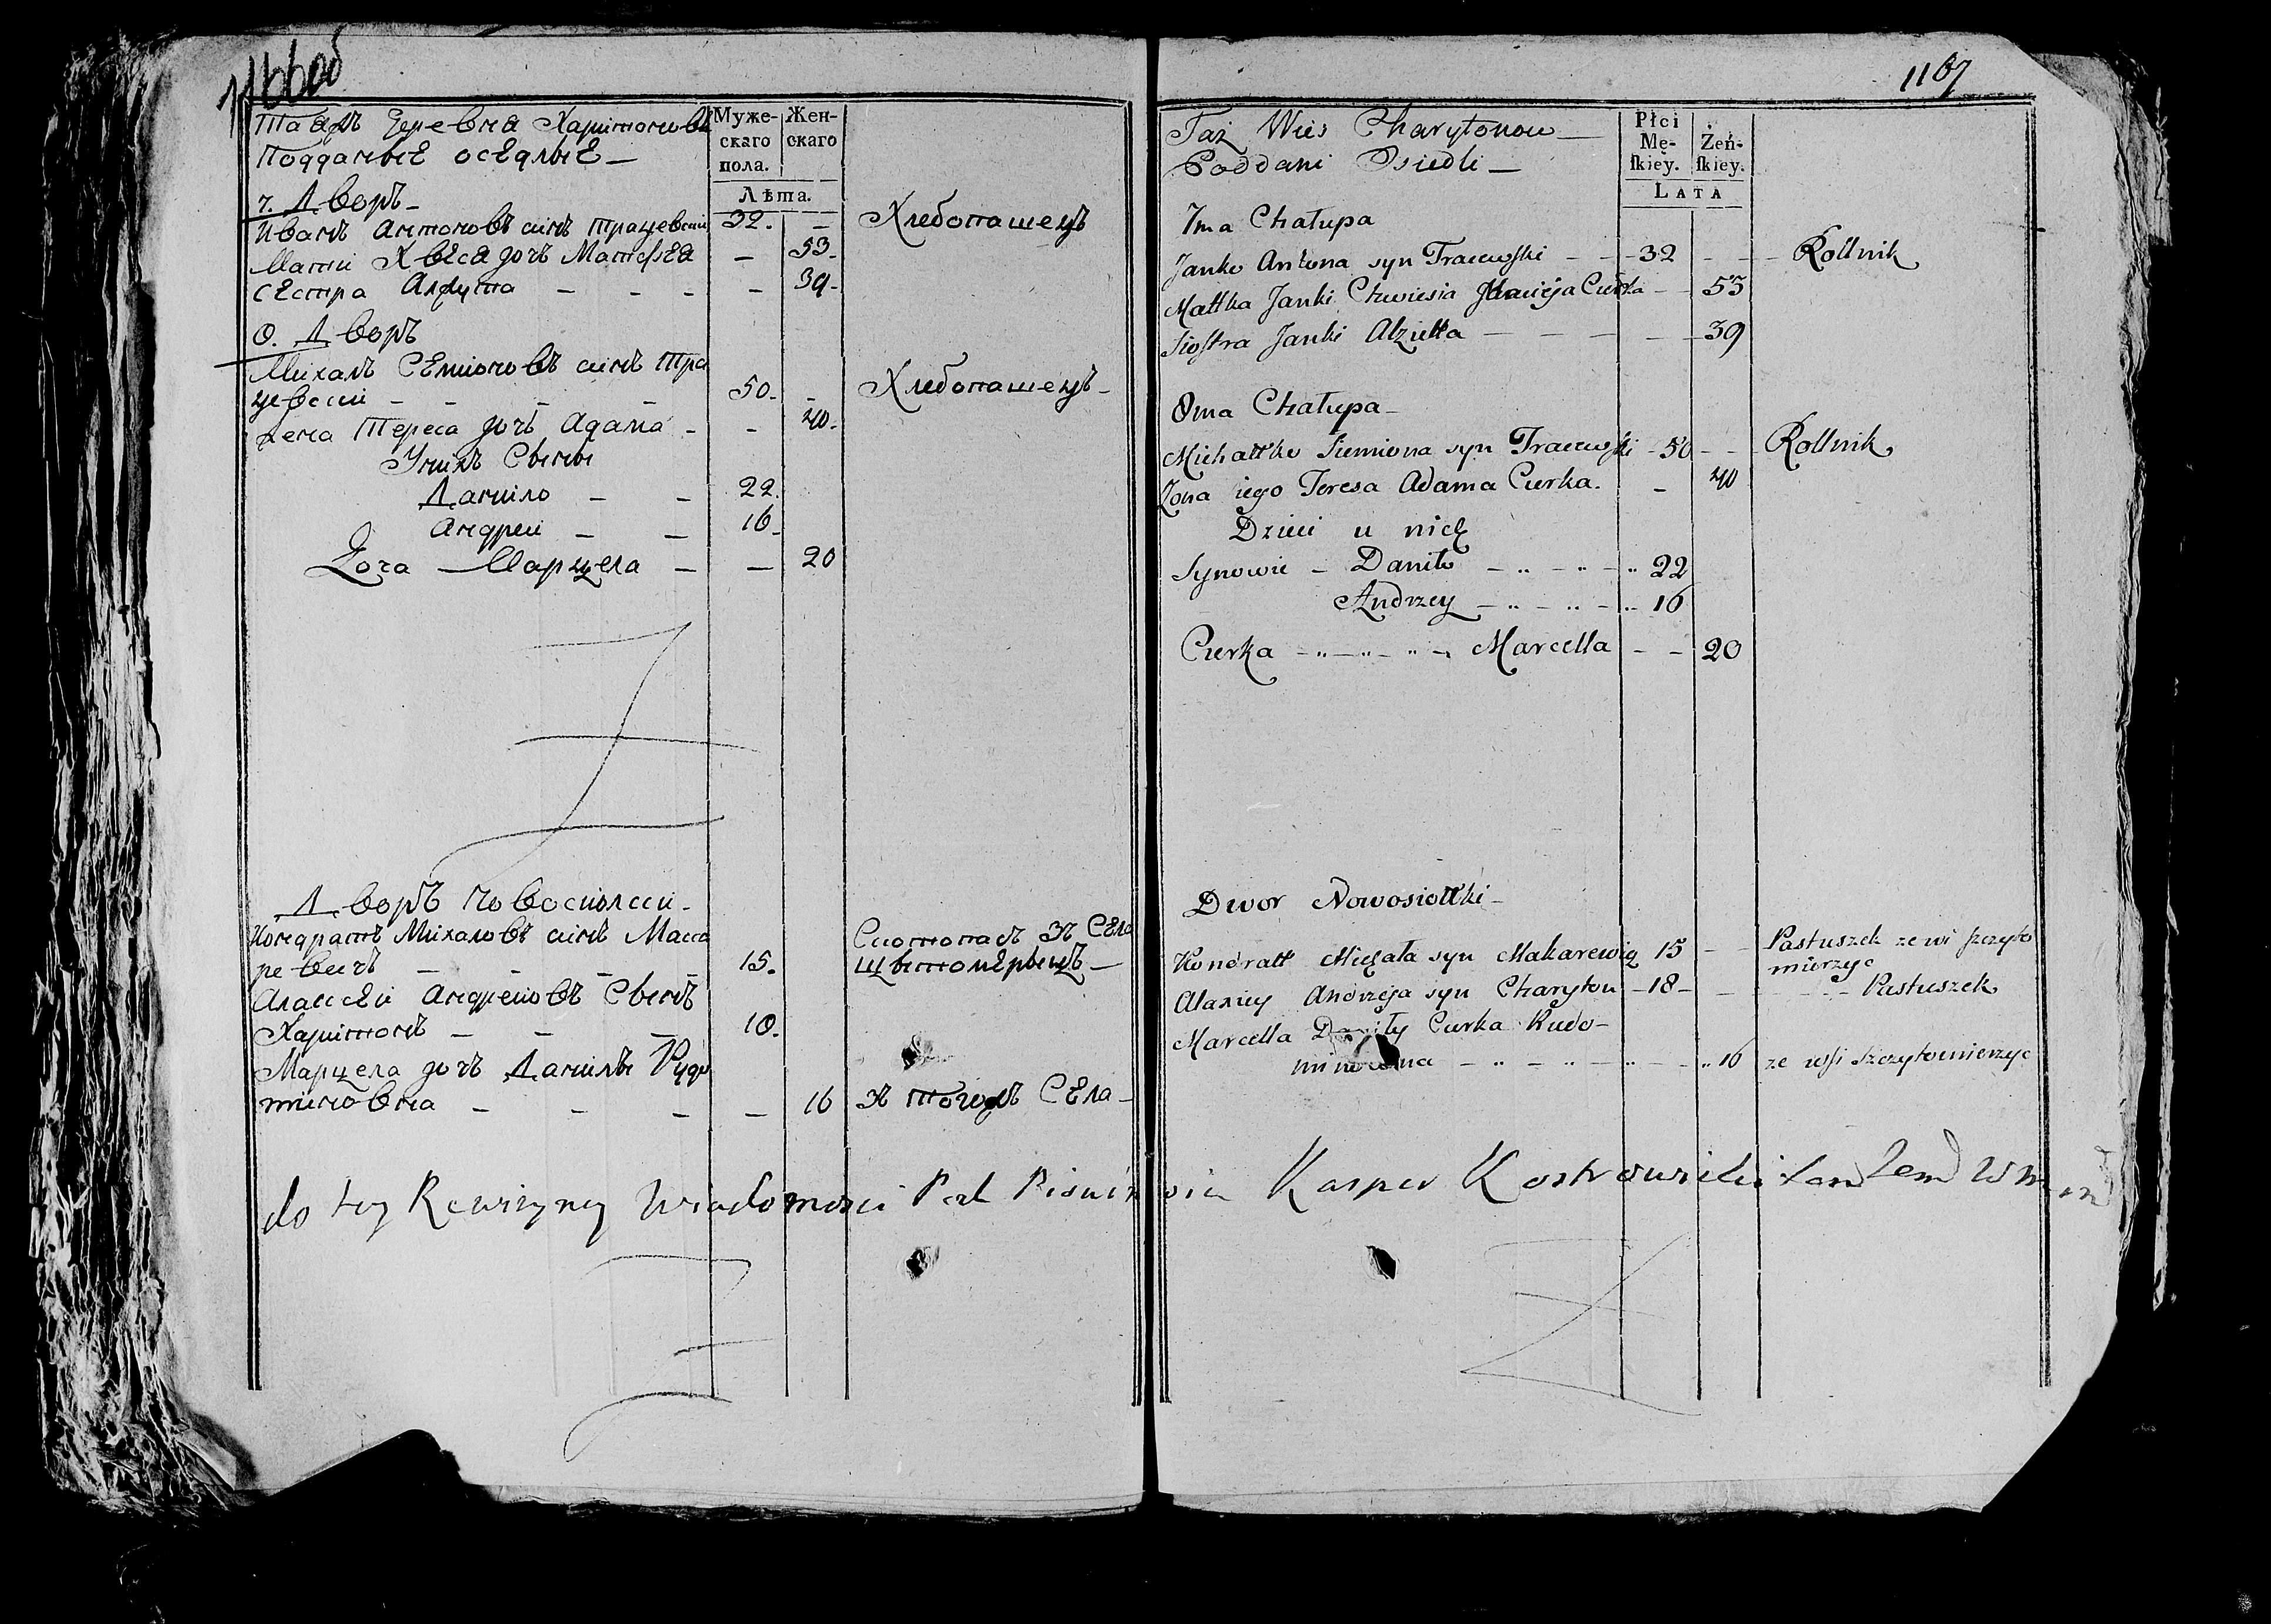 1166об
Таяжъ деревня Харитоновъ
Подданые оседлые —
Муже-
скаго
пола.
Жен-
скаго
Лѣта.
7. Дворъ —
Иванъ Антоновъ синъ Трацевски 32. — Хлебопашецъ
Мати Хвеся дочъ Матфея — 53.
Сестра Алжута — — — — 39.
8. Дворъ
Михалъ Семіоновъ синъ Тра
цевски — — — — 50. — Хлебопашецъ —
Жена Тереса дочъ Адама — — 40.
Унихъ Сыны
Данило — — 22.
Андреи — — 16.
Доча Марцела — — 20
Дворъ Новосиолки —
Кондратъ Михаловъ синъ Мака
ревичъ — — — 15.
Скотопасъ зъ Села
Щытомерыцъ —
Алаксеи Андреіовъ Сынъ
Харитонъ — — — 18.
Марцела дочъ Данилы Рудо
миновна — — — — 16 зъ тогожъ Села —
1167
Taż Wieś Charytonow —
Poddani Osiedli —
Płci
Mę-
skiey.
Żeń-
skiey.
LATA
7ma Chałupa
Janko Antona syn Tracewski — — 32 — — — Rolnik
Mattka Janki Chwiesia Macieja Curka — — 53
Siostra Janki Alzutta — — — — — 39
8ma Chałupa —
Michałtko Siemiona syn Tracewski — 50 — — Rolnik
Zona iego Teresa Adama Curka. — 40
Dzieci u nich
Synowie — Daniło — „ — „ — „ 22
Andrzey — „ — „ — „ 16
Curka — „ — „ — „ — Marcella — — 20
Dwor Nowosiołki —
Kondratt Michała syn Makarewicz 15 — — Pastuszek ze wsi Szczyto
mierzyc
Alaxiey Andrzeja syn Charyton — 18 — — — — — Pastuszek
Marcella Daniły Curka Rudo —
minowna — „ — „ — „ — „ 16 ze wsi Szczytomierzyc
do tey Rewizyney Wiadomosci Kasper Kostrowicki